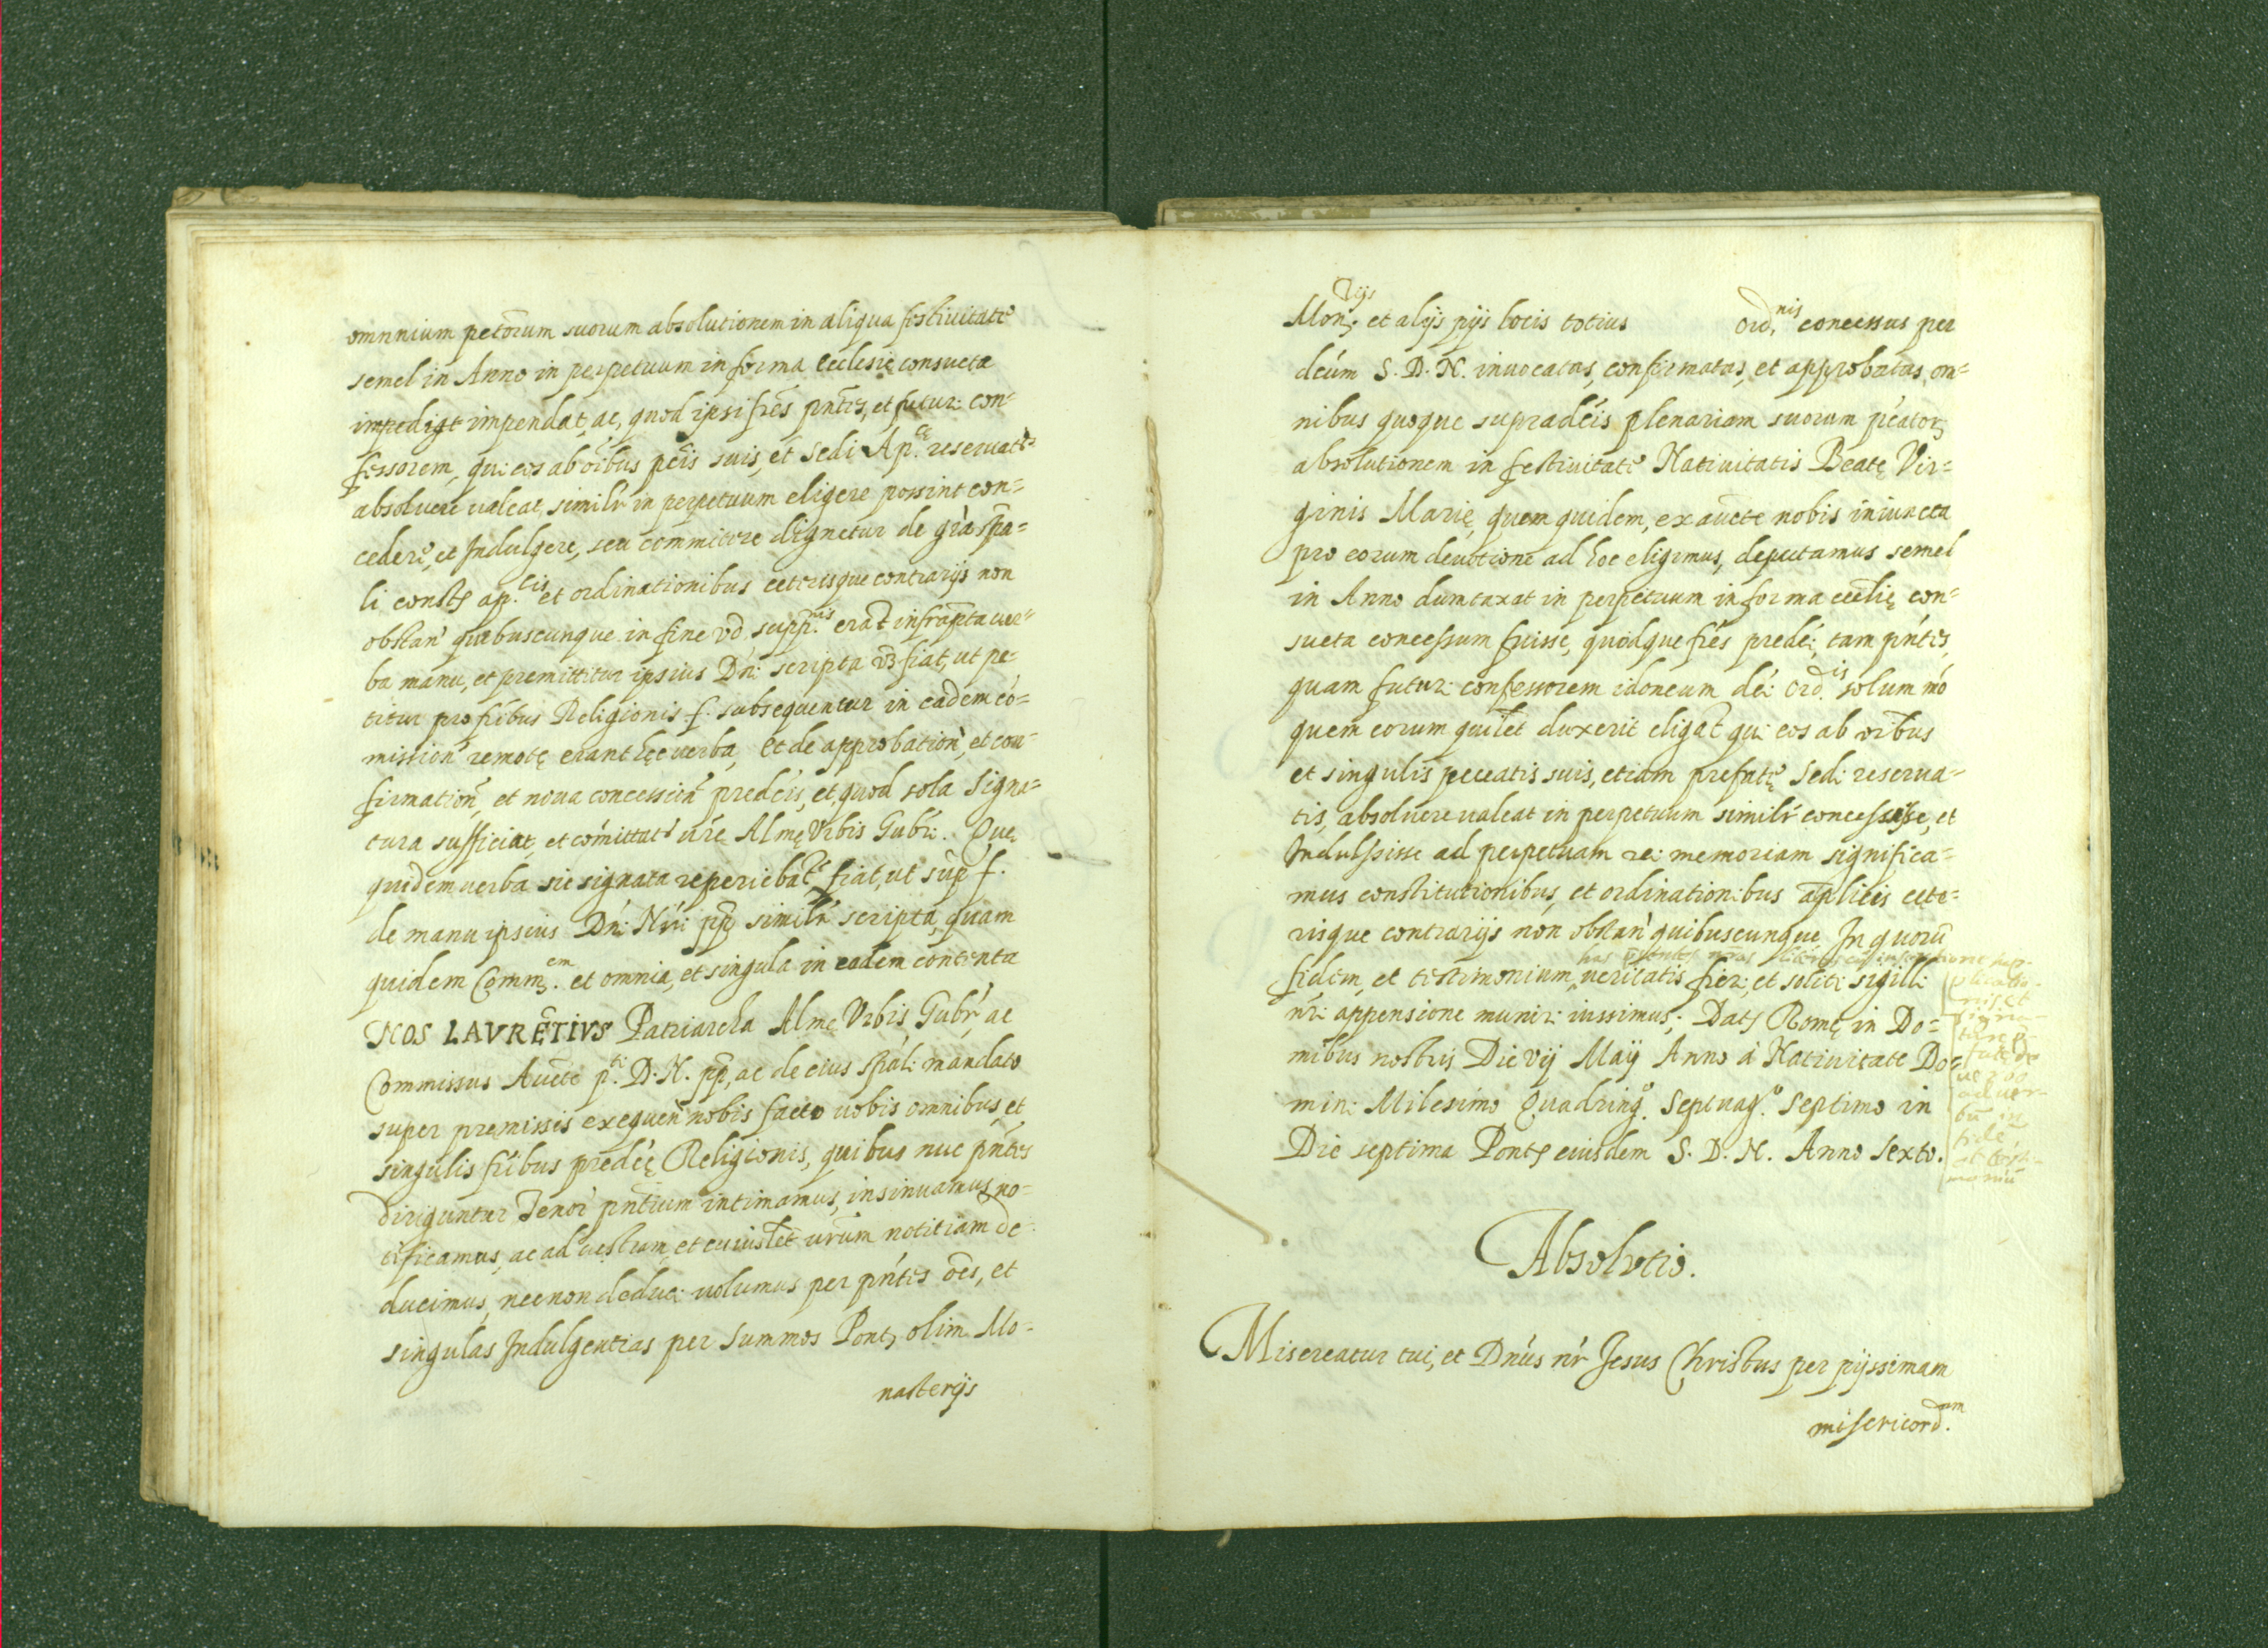 omnnium pctõrum suorum absolutionem in aliqua festiuitate
semel in Anno in perpetuum in forma Ecclesię consueta
impedigt impendat, ac, quod ipsi fres pntes, et futuri con-
fessorem, qui eos ab oibus pctis suis, et Sedi Ap.cę reseruatis
absoluere ualeat, similr in perpetuum eligere possint con-
cedere, et Indulgere, seu committere dignetur de gra spa-
li constỹ ap.cis et ordinationibus ceterisque contrarijs non
obstan quibuscunque in fine vo supp.nis erat infrapta uer-
ba manu, et premittitur ipsius Dni scripta vz fiat, ut pe-
titur pro fribus Religionis f. subsequentur in eadem co-
mission remotę erant hęc verba, et de approbation, et con-
firmation, et noua concession predcis, et quod sola signa-
tura sufficiat, et comittat ure Almę Vrbis Gubri. Quę
quidem uerba sic signata reperiebat fiat, ut sup f.
de manu ipsius Dni Nri pp similr scripta, quam
quidem Comm.em et omnia, et singula in eadem contenta
NOS LAVRETIVS Patriarcha Almę Vrbis Gubr, ac
Commissus Aucte p.ti D. N. pp, ac de eius spali mandato
super premissis exequen nobis facto uobis omnibus, et
singulis fribus predcę Religionis, quibus nuc pntes
diriguntur Tenor pntium intimamus, insinuamus, no-
tificamus, ac ad uestram, et cuiuslet urum notitiam de-
ducimus, necnon deduci volumus per pntes oes, et
singulas Indulgentias per Summos Pont, olim Mo-
nasterijs
Mon.rijs et alijs pijs locis totius ord.nis concessus per
dcum S. D. N. inuocatas, confirmatas, et approbatas, om-
nibus quoque supradcis plenariam suorum pcator
absolutionem in festiuitate Natiuitatis Beatę Vir-
ginis Marię, quem quidem, ex aucte nobis iniuncta
pro eorum deuotione ad hoc eligimus, deputamus semel
in Anno dumtaxat in perpetuum in forma ecclię con-
sueta concessum fuisse, quodque fres predci, tam pntes,
quam futuri confessorem idoneum dci Ord.is solum mo
quem eorum quilet duxerit eligat qui eos ab oibus
et singulis peccatis suis, etiam prefatę Sedi reserua-
tis, absoluere ualeat in perpetuum similr concessisse, et
Indulsisse ad perpetuam rei memoriam significa-
mus constitutionibus, et ordinationibus aplicis cete-
risque contrarijs non obstan quibuscunque In quoru
has pntes nras
fidem, et testimonium, ueritatis fieri, et soliti sigilli
nri appensione muniri iussimus. Dat Romę in Do-
mibus nostris Die vij Maij Anno à Natiuitate Do-
mini Milesimo Quadring.o Septuag.o septimo in
Die septima Pont eiusdem S. D. N. Anno Sexto.
plicatio-
nis et
signa-
ad uer-
bu in
fide
et testi-
moniu
Absolvtio.
Misereatur tui, et Dnus nr Jesus Christus per pijssimam
misericord.am